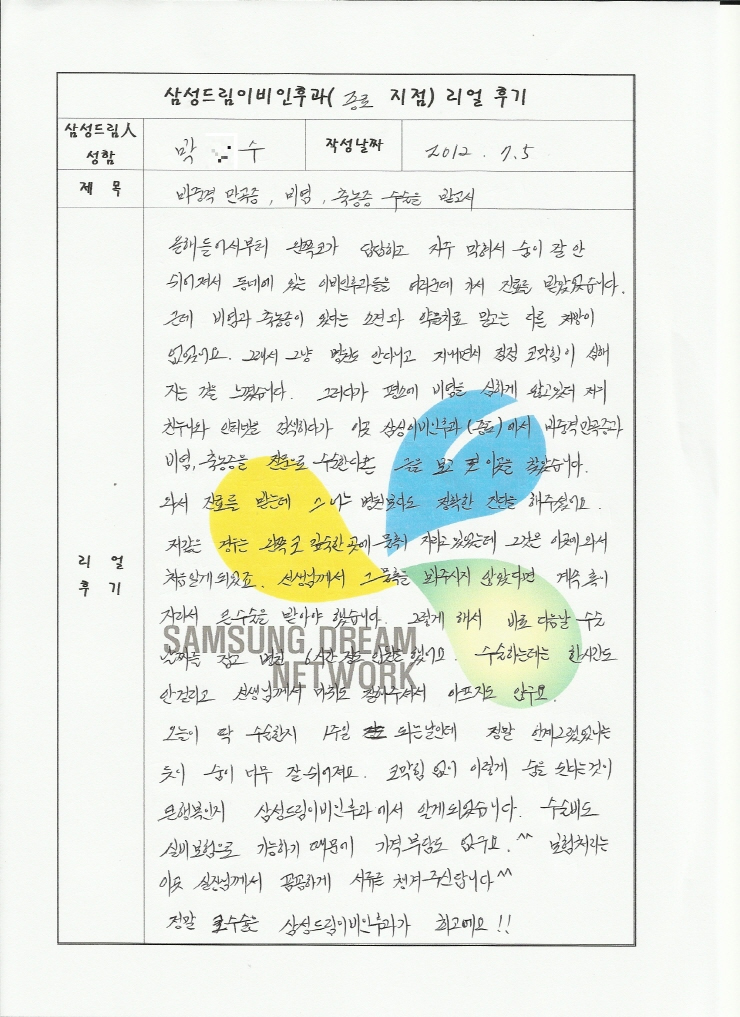 삼성드림이비인후과( 종로 지점) 리얼 후기
삼성드림人
성함
막 수
작성날짜
2012 . 7.5
제 목
비중격 만곡증 , 비염 , 축농증 수술을 받고서
리 얼
후 기
올해들어서부터 왼쪽코가 답답하고 자주 막혀서 숨이 잘 안
쉬어져서 동네에 있는 이비인후과들을 여러군데 가서 진료를 받았었습니다.
근데 비염과 축농증이 있다는 소견과 약물치료 말고는 다른 처방이
없었어요. 그래서 그냥 병원도 안다니고 지내면서 점점 코막힘이 심해
지는 것을 느꼈습니다. 그러다가 평소에 비염을 심하게 앓고있던 저기
친누나와 인터넷을 검색하다가 이곳 삼성이비인후과(종로)에서 비중격만곡증과
비염, 축농증을 전문으로 수술한다는 글을 보고 이곳을 찾았습니다.
와서 진료를 받는데 어느 병원보다도 정확한 진단을 해주셨어요.
저같은 경우는 왼쪽 코 깊숙한 곳에 물혹이 자라고 있었는데 그것은 이곳에 와서
처음알게 되었죠. 선생님께서 그 물혹을 봐주시지 않았다면 계속 혹이
자라서 큰수술을 받아야 했습니다. 그렇게 해서 바로 다음날 수술
SAMSUNG DREAM
날짜를 잡고 병원 6시간 정도 입원을 했어요. 수술하는데는 한시간도
NETWORK
안걸리고 선생님께서 마취도 잘해주셔서 아프지도 않구요.
오늘이 딱 수술한지 1주일 되는날인데 정말 언제그랬었냐는
듯이 숨이 너무 잘 쉬어져요. 코막힘 없이 이렇게 숨을 쉰다는것이
큰행복인지 삼성드림이비인후과에서 알게되었습니다. 수술비도
실비보험으로 가능하기 때문에 가격부담도 없구요.^^ 보험처리는
이곳 실장님께서 꼼꼼하게 서류를 챙겨주신답니다^^
정말 코수술은 삼성드림이비인후과가 최고에요!!